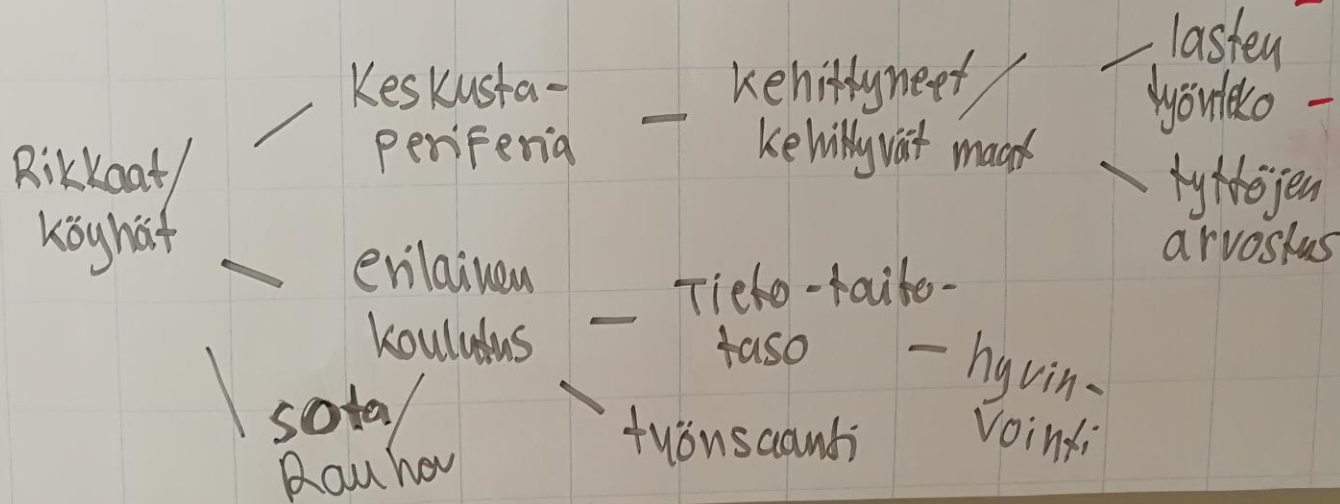 Rikkaat/
köyhät
Keskusta-
periferia
kehittyneet/
kehittyvät maat
lasten
työnteko
tyttöjen
arvostus
erilainen
koulutus
Tieto-taito-
taso
hyvin-
vointi
työnsaanti
sota/
Rauha